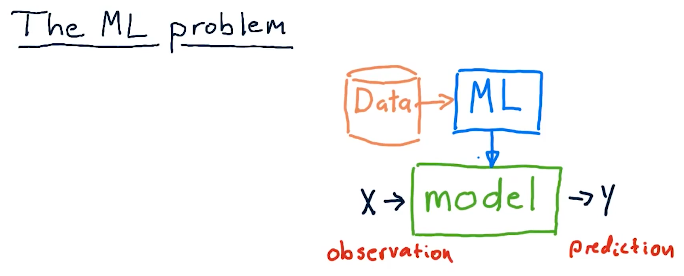 The ML problem
Data → ML
X → model → Y
observation prediction